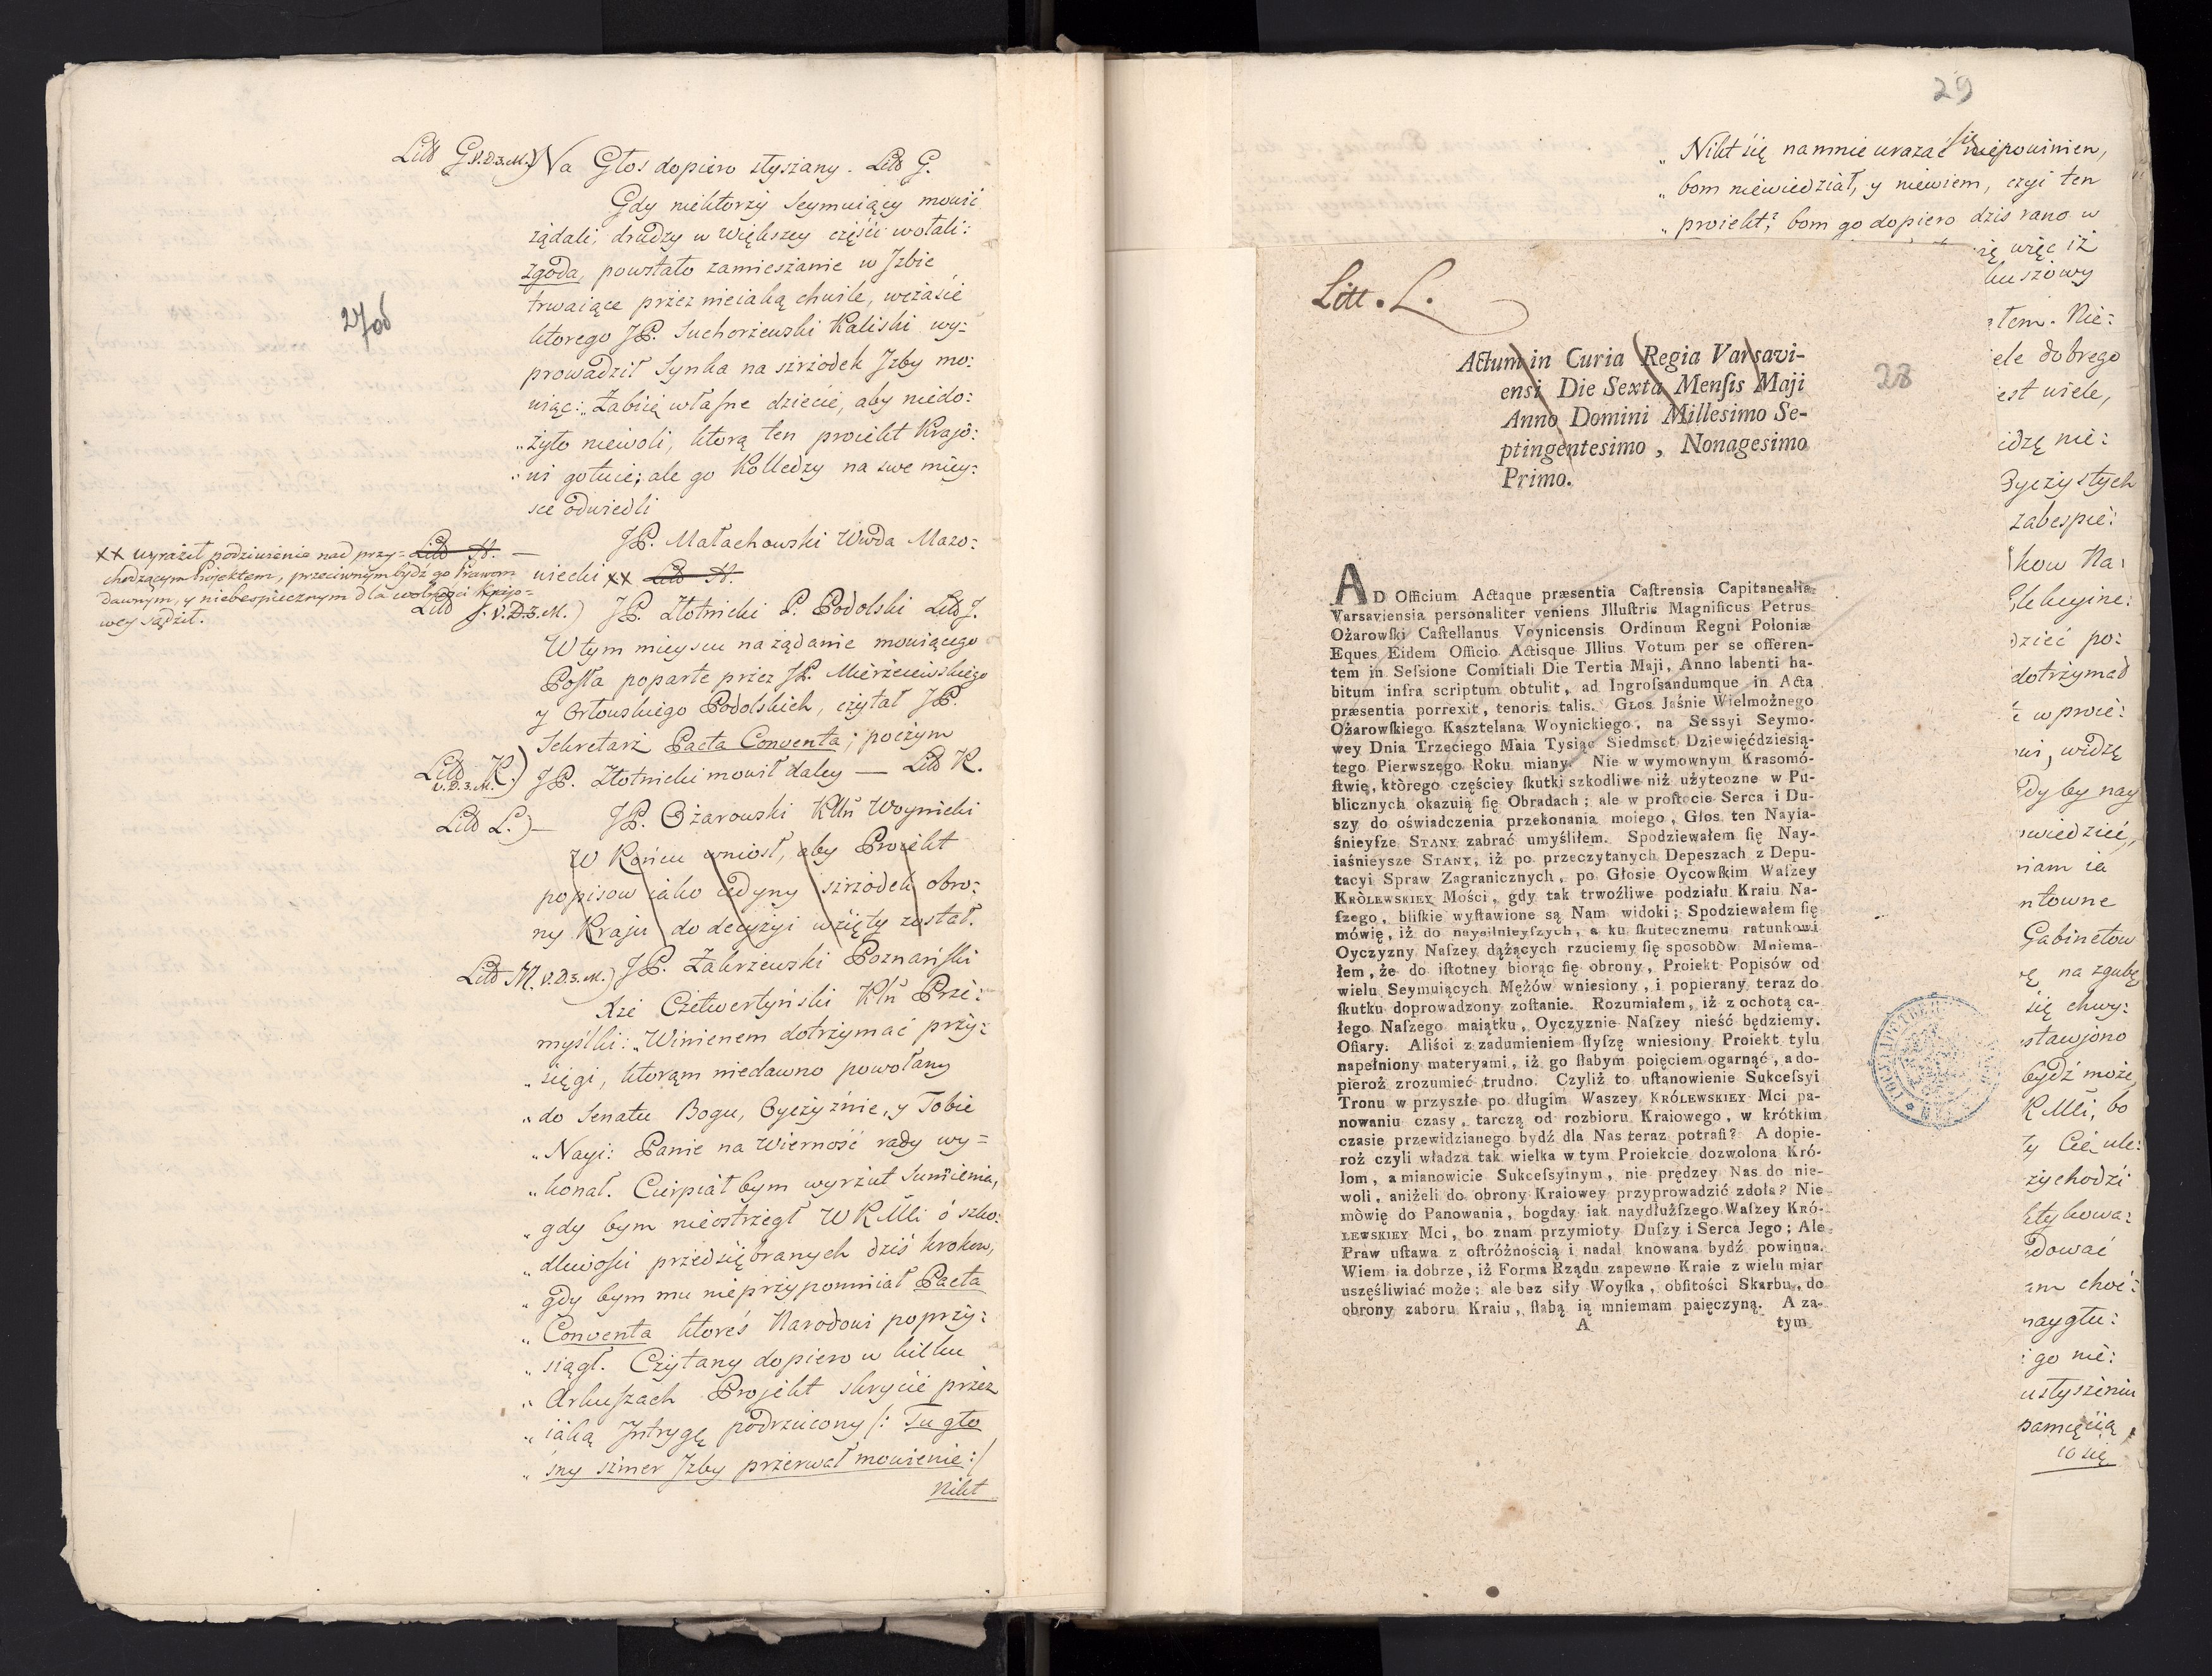 Litt G. V.D.3.M.) Na Głos dopiero słyszany. Litt G.
Gdy niektorzy Seymuiący mowić
żądali, drudzy w większey części wołali:
zgoda, powstało zamieszanie w Jzbie
trwaiące przez nieiaką chwilę, wczasie
ktorego JP. Suchorzewski Kaliski wy=
prowadził Synka na szrzodek Jzby mo:
wiąc: „Zabiię własne dziecie, aby niedo:
„żyło niewoli, ktorą ten proiekt Krajo:
„wi gotuie; ale go Kolledzy na swe miey:
sce odwiedli
27od
JP. Małachowski Wwda Mazo:
wiecki xx Litt H.
Litt H. —
xx wyraził podziwienie nad przy=
chodzącym Projektem, przeciwnym bydź go Prawom
dawnym, y niebespiecznym dla wolności Krajo=
wey sądził.
Litt J. V.D.3.M.) JP. Złotnicki P. Podolski Litt J.
W tym mieyscu na żądanie mowiącego
Posła poparte przez JP. Mierzeiewskiego
y Orłowskiego Podolskich, czytał JP.
Sekretarz Pacta Conventa; poczym
Litt K. V.D.3.M.) JP. Złotnicki mowił daley — Litt K.
Litt L.) — JP. Ożarowski Kttn Woynicki
W Końcu wniosł, aby Proiekt
popisow iako iedyny szrzodek obro:
ny Kraju do decyzyi wzięty został.
Litt M. V.D.3.M.) JP. Zakrzewski Poznański
Xże Czetwertyński Kttn Prze:
myślki: „Winienem dotrzymać przy:
„sięgi, ktorąm niedawno powołany
„do Senatu Bogu, Oyczyźnie, y Tobie
„Nayi: Panie na Wierność rady wy=
„konał. Cierpiał bym wyrzut Sumienia,
„gdy bym nieostrzegł WKMći o szko:
„dliwości przedsiębranych dziś krokow,
„gdy bym mu nieprzypomniał Pacta
„Conventa ktoreś Narodowi poprzy:
„siągł. Czytany dopiero w kilku
„Arkuszach Projekt skrycie przez
„iaką Jntrygę podrzucony /: Tu gło
„śny szmer Jzby przerwał mowienie:/
Nikt
29
„Nikt się na mnie urazać się niepowinien,
„bom niewiedział, y niewiem, czyi ten
„proiekt? bom go dopiero dzis rano w
ię więc iż
kuszowy
łem. Nie:
ele dobrego
est wiele,
idzę nie:
Oyczystych
zabespie:
kow Na:
dzieć po:
dotrzymad
w proie:
wi, widzę
dy by nay
wiedzieć,
niam ia
ntowne
Gabinetow
na zgubę
się chwy:
stawjono
bydź może,
KMći, bo
zychodzi
ktykowa:
dować
am choć:
naygłu:
go nie:
usłyszeniu
pamięcią,
co się
Litt. L.
28
Actum in Curia Regia Varsavi-
ensi Die Sexta Mensis Maji
Anno Domini Millesimo Se-
ptingentesimo, Nonagesimo
Primo.
AD Officium Actaque præsentia Castrensia Capitanealia
Varsaviensia personaliter veniens Jllustris Magnificus Petrus
Ożarowski Castellanus Voynicensis Ordinum Regni Poloniæ
Eques Eidem Officio Actisque Jllius Votum per se offeren-
tem in Sessione Comitiali Die Tertia Maji, Anno labenti ha-
bitum infra scriptum obtulit, ad Ingrossandumque in Acta
præsentia porrexit, tenoris talis. Głos Jaśnie Wielmożnego
Ożarowskiego Kasztelana Woynickiego, na Sessyi Seymo-
wey Dnia Trzeciego Maia Tysiąc Siedmset Dziewięćdziesią-
tego Pierwszego Roku miany. Nie w wymownym Krasomó-
stwię, którego częściey skutki szkodliwe niż użyteczne w Pu-
blicznych okazuią się Obradach; ale w prostocie Serca i Du-
szy do oświadczenia przekonania moiego, Głos ten Nayia-
śnieysze STANY zabrać umyśliłem. Spodziewałem się Nay-
iaśnieysze STANY, iż po przeczytanych Depeszach z Depu-
tacyi Spraw Zagranicznych, po Głosie Oycowskim Waszey
KRÒLEWSKIEY Mości, gdy tak trwoźliwe podziału Kraiu Na-
szego, bliskie wystawione są Nam widoki; Spodziewałem się
mówię, iż do naysilnieyszych, a ku skutecznemu ratunkowi
Oyczyzny Naszey dążących rzuciemy się sposobów Mniema-
łem, że do istotney biorąc się obrony, Proiekt Popisów od
wielu Seymuiących Mężów wniesiony, i popierany teraz do
skutku doprowadzony zostanie. Rozumiałem, iż z ochotą ca-
łego Naszego maiątku, Oyczyznie Naszey nieść będziemy
Ofiary. Aliści z zadumieniem słyszę wniesiony Proiekt tylu
napełniony materyami, iż go słabym poięciem ogarnąć, a do-
pieroż zrozumieć trudno. Czyliż to ustanowienie Sukcessyi
Tronu w przyszłe po długim Waszey KRÓLEWSKIEY Mci pa-
nowaniu czasy, tarczą od rozbioru Kraiowego, w krótkim
czasie przewidzianego bydź dla Nas teraz potrafi? A dopie-
roż czyli władza tak wielka w tym Proiekcie dozwolona Kró-
lom, a mianowicie Sukcessyinym, nie prędzey Nas do nie-
woli, aniżeli do obrony Kraiowey przyprowadzić zdoła? Nie
mòwię do Panowania, bogday iak naydłuższego Waszey KRÓ-
LEWSKIEY Mci, bo znam przymioty Duszy i Serca Jego; Ale
Praw ustawa z ostróżnością i nadal knowana bydź powinna.
Wiem ia dobrze, iż Forma Rządu zapewne Kraie z wielu miar
uszęśliwiać może; ale bez siły Woyska, obfitości Skarbu, do
obrony zaboru Kraiu, słabą ią mniemam paięczyną. A za-
A tym